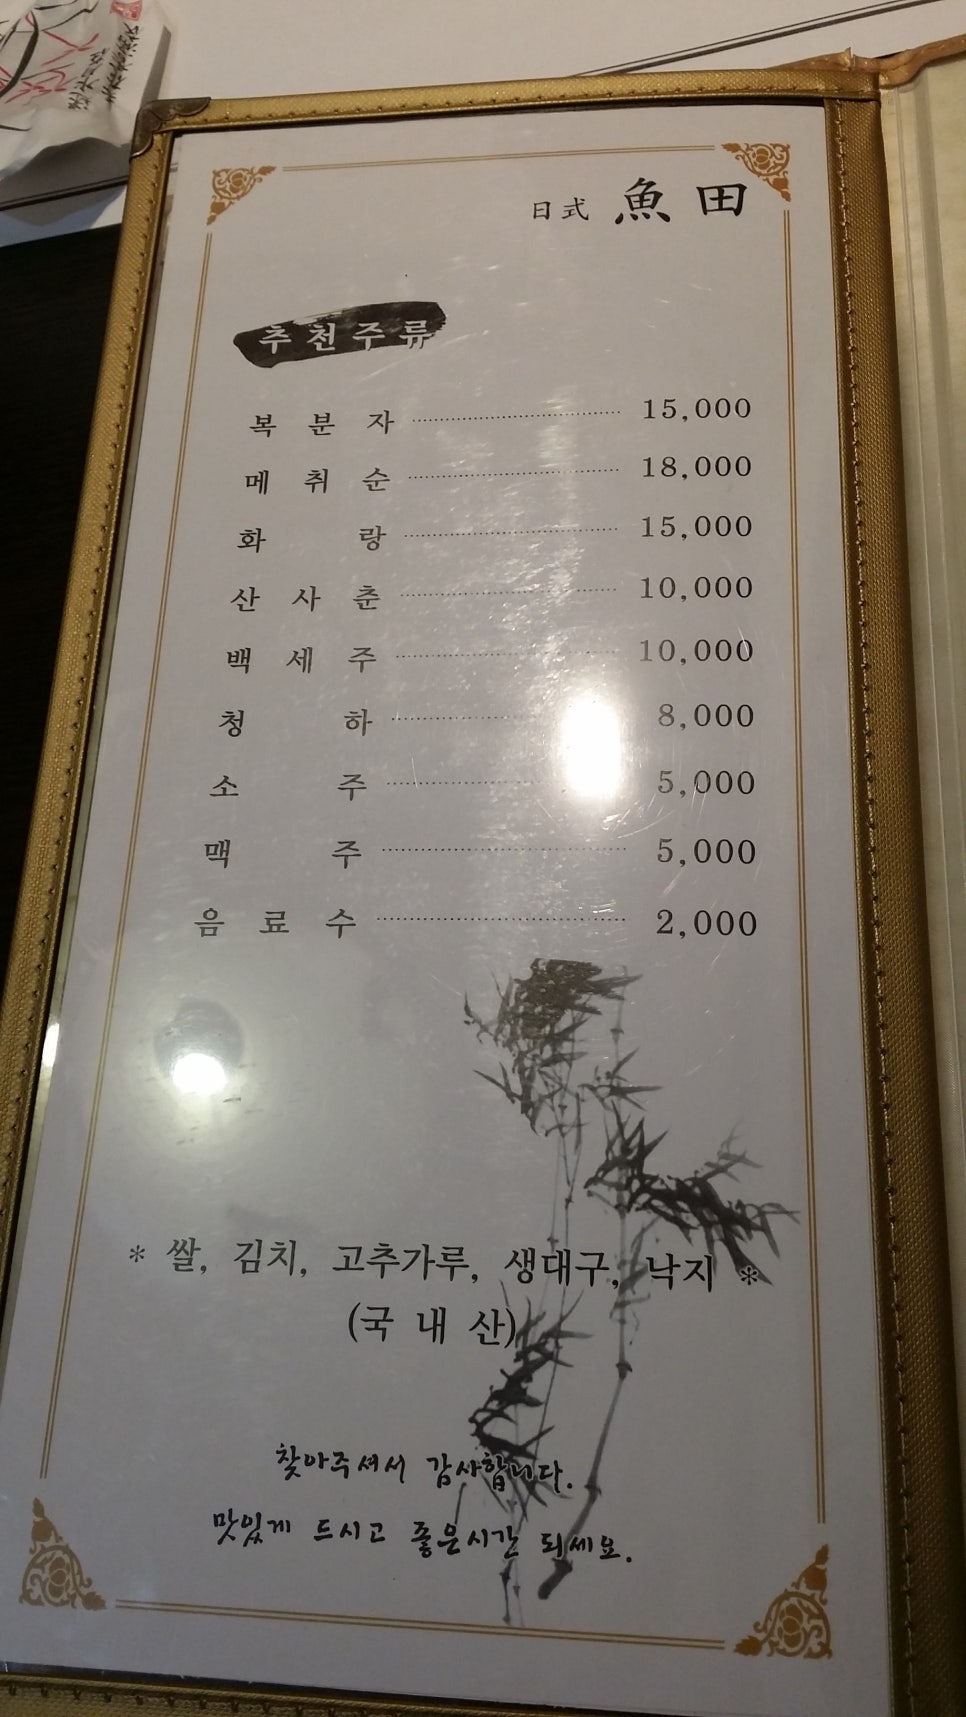 日式 魚田
추천주류
복분자 15,000
메취순 18,000
화랑 15,000
산사춘 10,000
백세주 10,000
청하 8,000
소주 5,000
맥주 5,000
음료수 2,000
* 쌀, 김치, 고추가루, 생대구, 낙지 *
(국내산)
찾아주셔서 감사합니다.
맛있게 드시고 좋은시간 되세요.